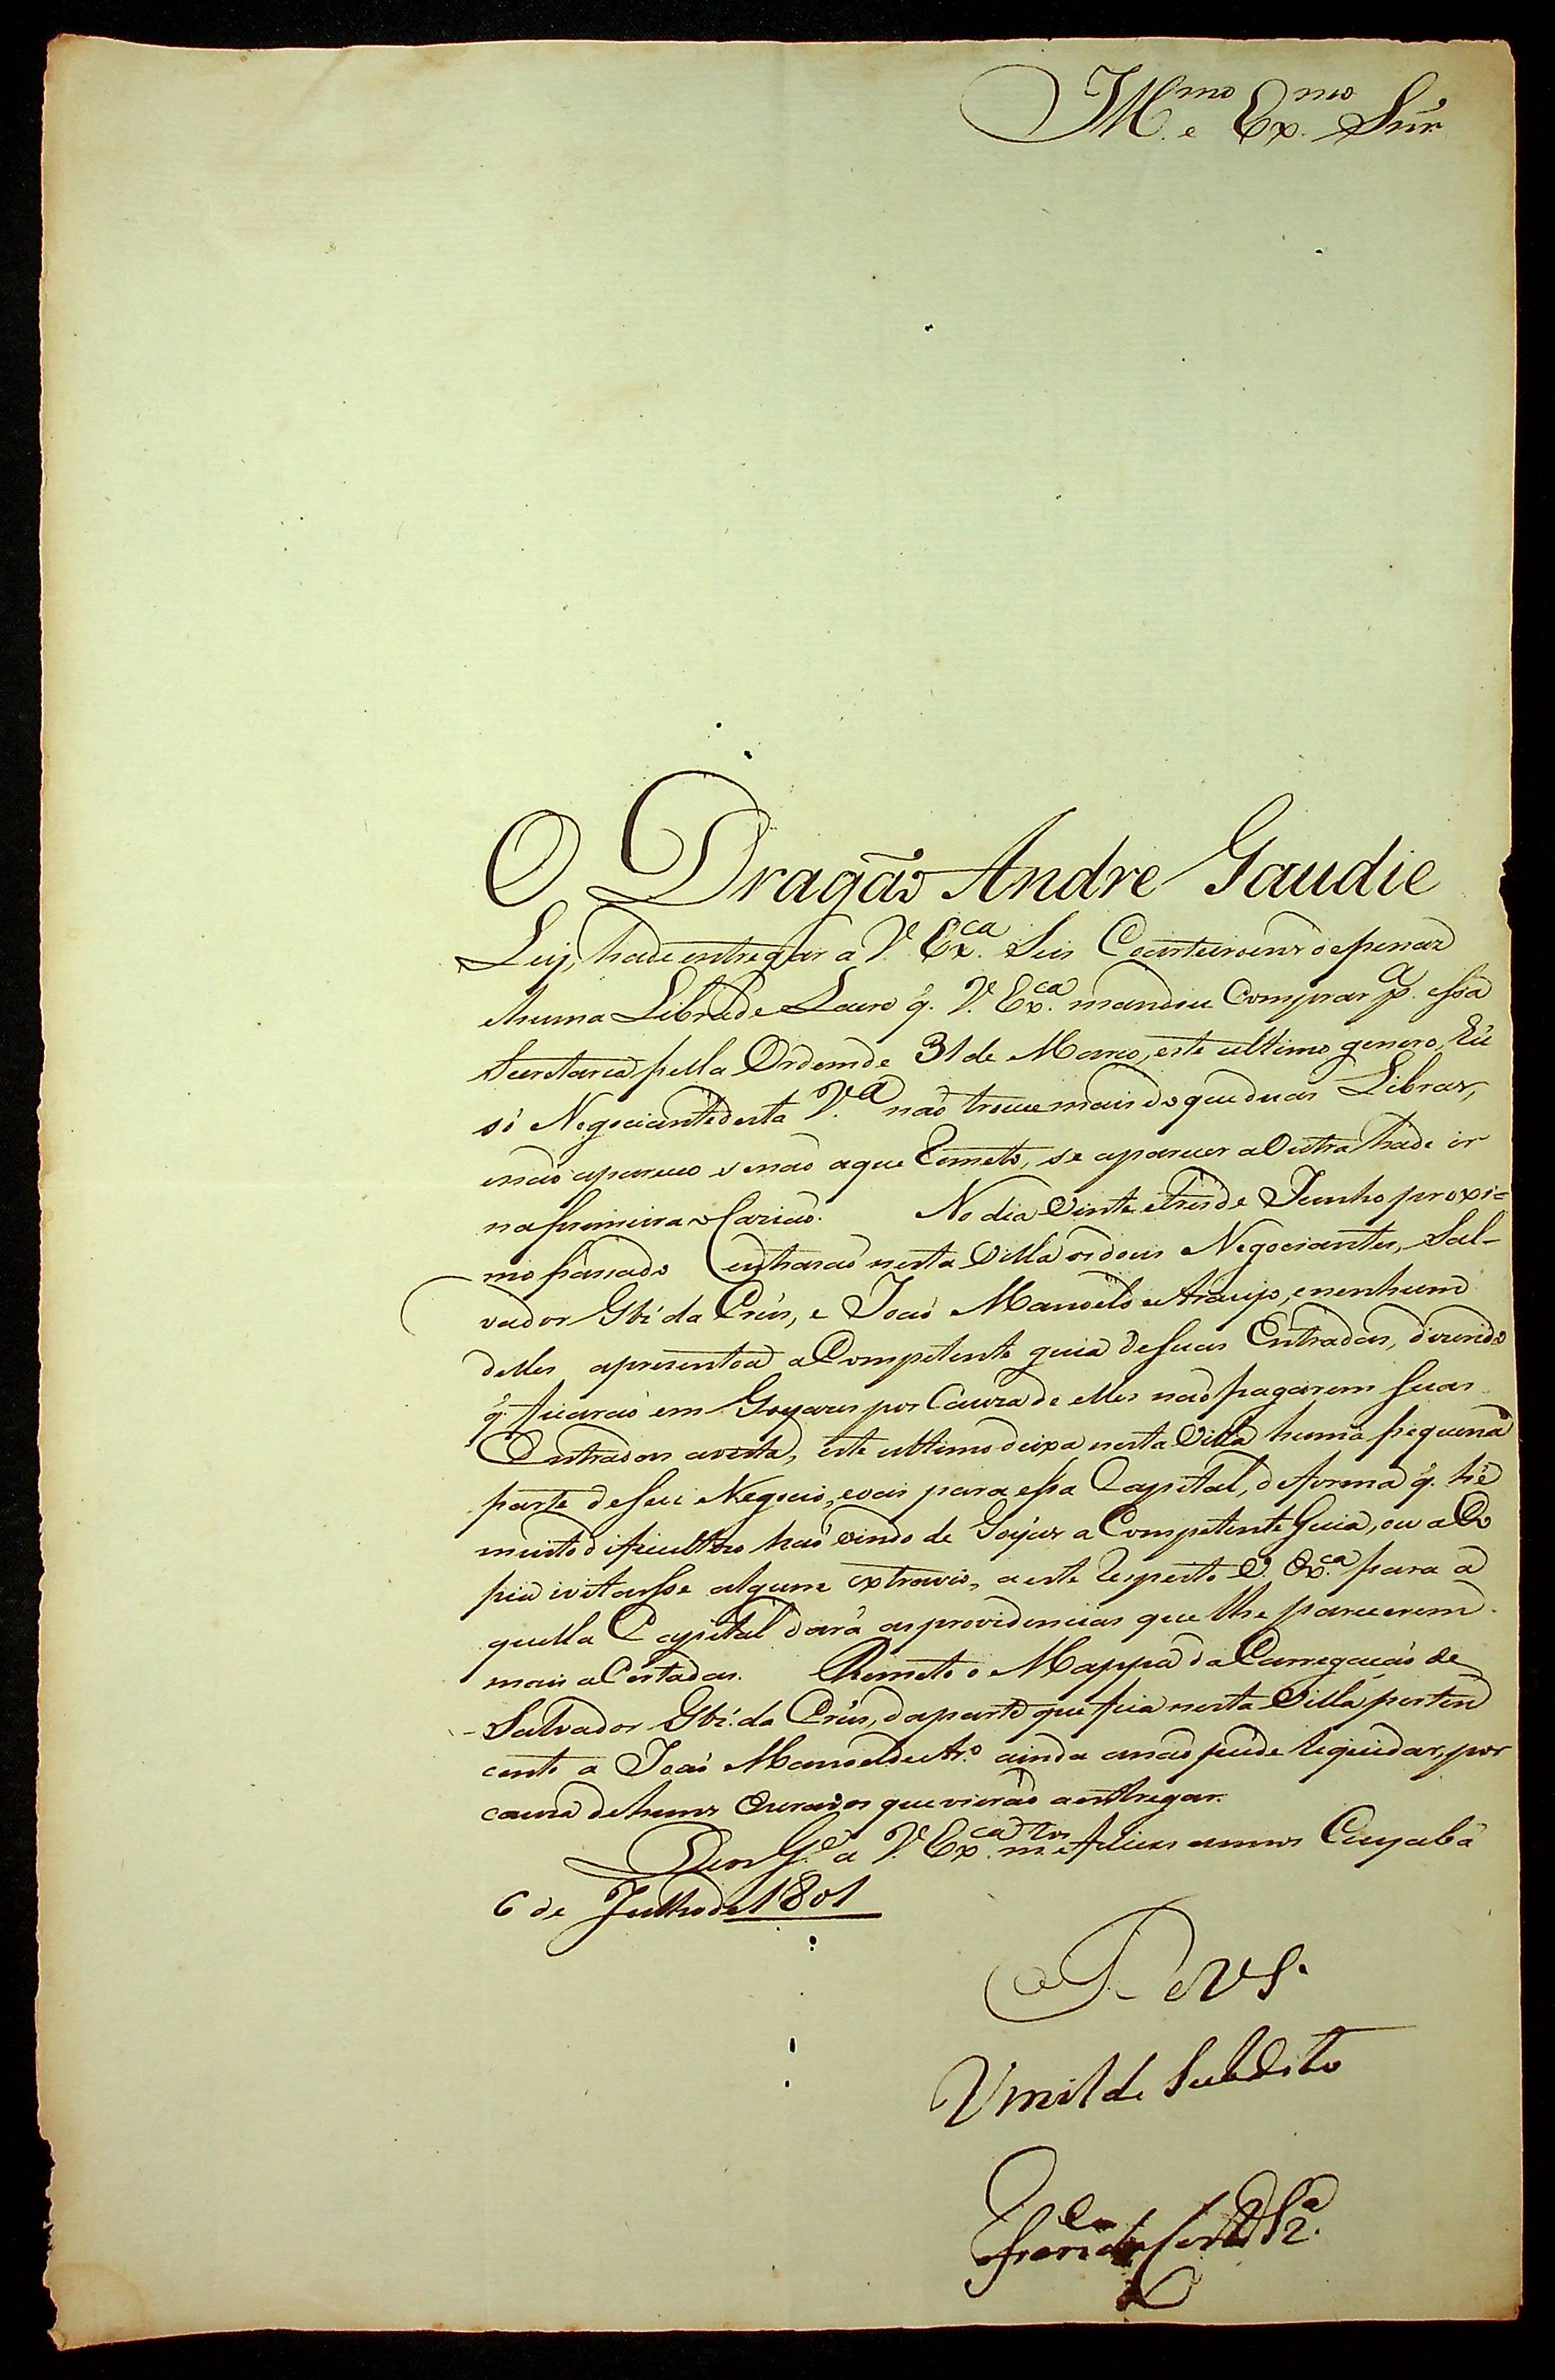 Ill.mo e Ex.mo Snr.
O Dragão Andre Gaudie
Ley, hade entregar a V. Ex.ca Seis Coarteiroens depenas
ehuma Librade Lacre q. V. Ex.ca mandou Comprar p.a essa
Secretaria pella Ordemde 31 de Marco, este ultimo genero, hú
só Negociantedesta V.a não trouce mais do que duas Libras,
enão apareceo senão aque Remeto, se aparecer aOutra hade ir
naprimeira oCazião. No dia Vinte etresde Junho proxi=
mo passado Entrarão nesta Villa os dous Negociantes, Sal-
vador Glz' da Crús, e João Manoel de Araujo, enenhum
delles apresentou aCompetente guia desuas Entradas, dizendo
q. ficarão em Goyazes por Cauza de elles não pagarem suas
Entradas avista, este ultimo deixa nesta Villa huma pequena
parte deseu Negocio, evai para essa Capital, deforma q. hé
muito dificultozo não vindo de Goyaz a Competente Guia, ou aCo
pia ivitarsse algum extravio, aeste respeito V. Ex.ca para a
quella Capital dará asprovidencias que lhe parecerem
mais aCertadas. Remeto o Mappa da Carregação de
Salvador Glz'. da Crús, daparte que fica nesta Villa perten
cente a João Manoel de Ar.o ainda anão pude liquidar, por
cauza dehuns Surroens que vierão aentregar.
Deos G.e a V. Ex.ca m.tos Felices annos Cuyabá
6 de Julho de 1801
De V. S.
Umilde Subdito